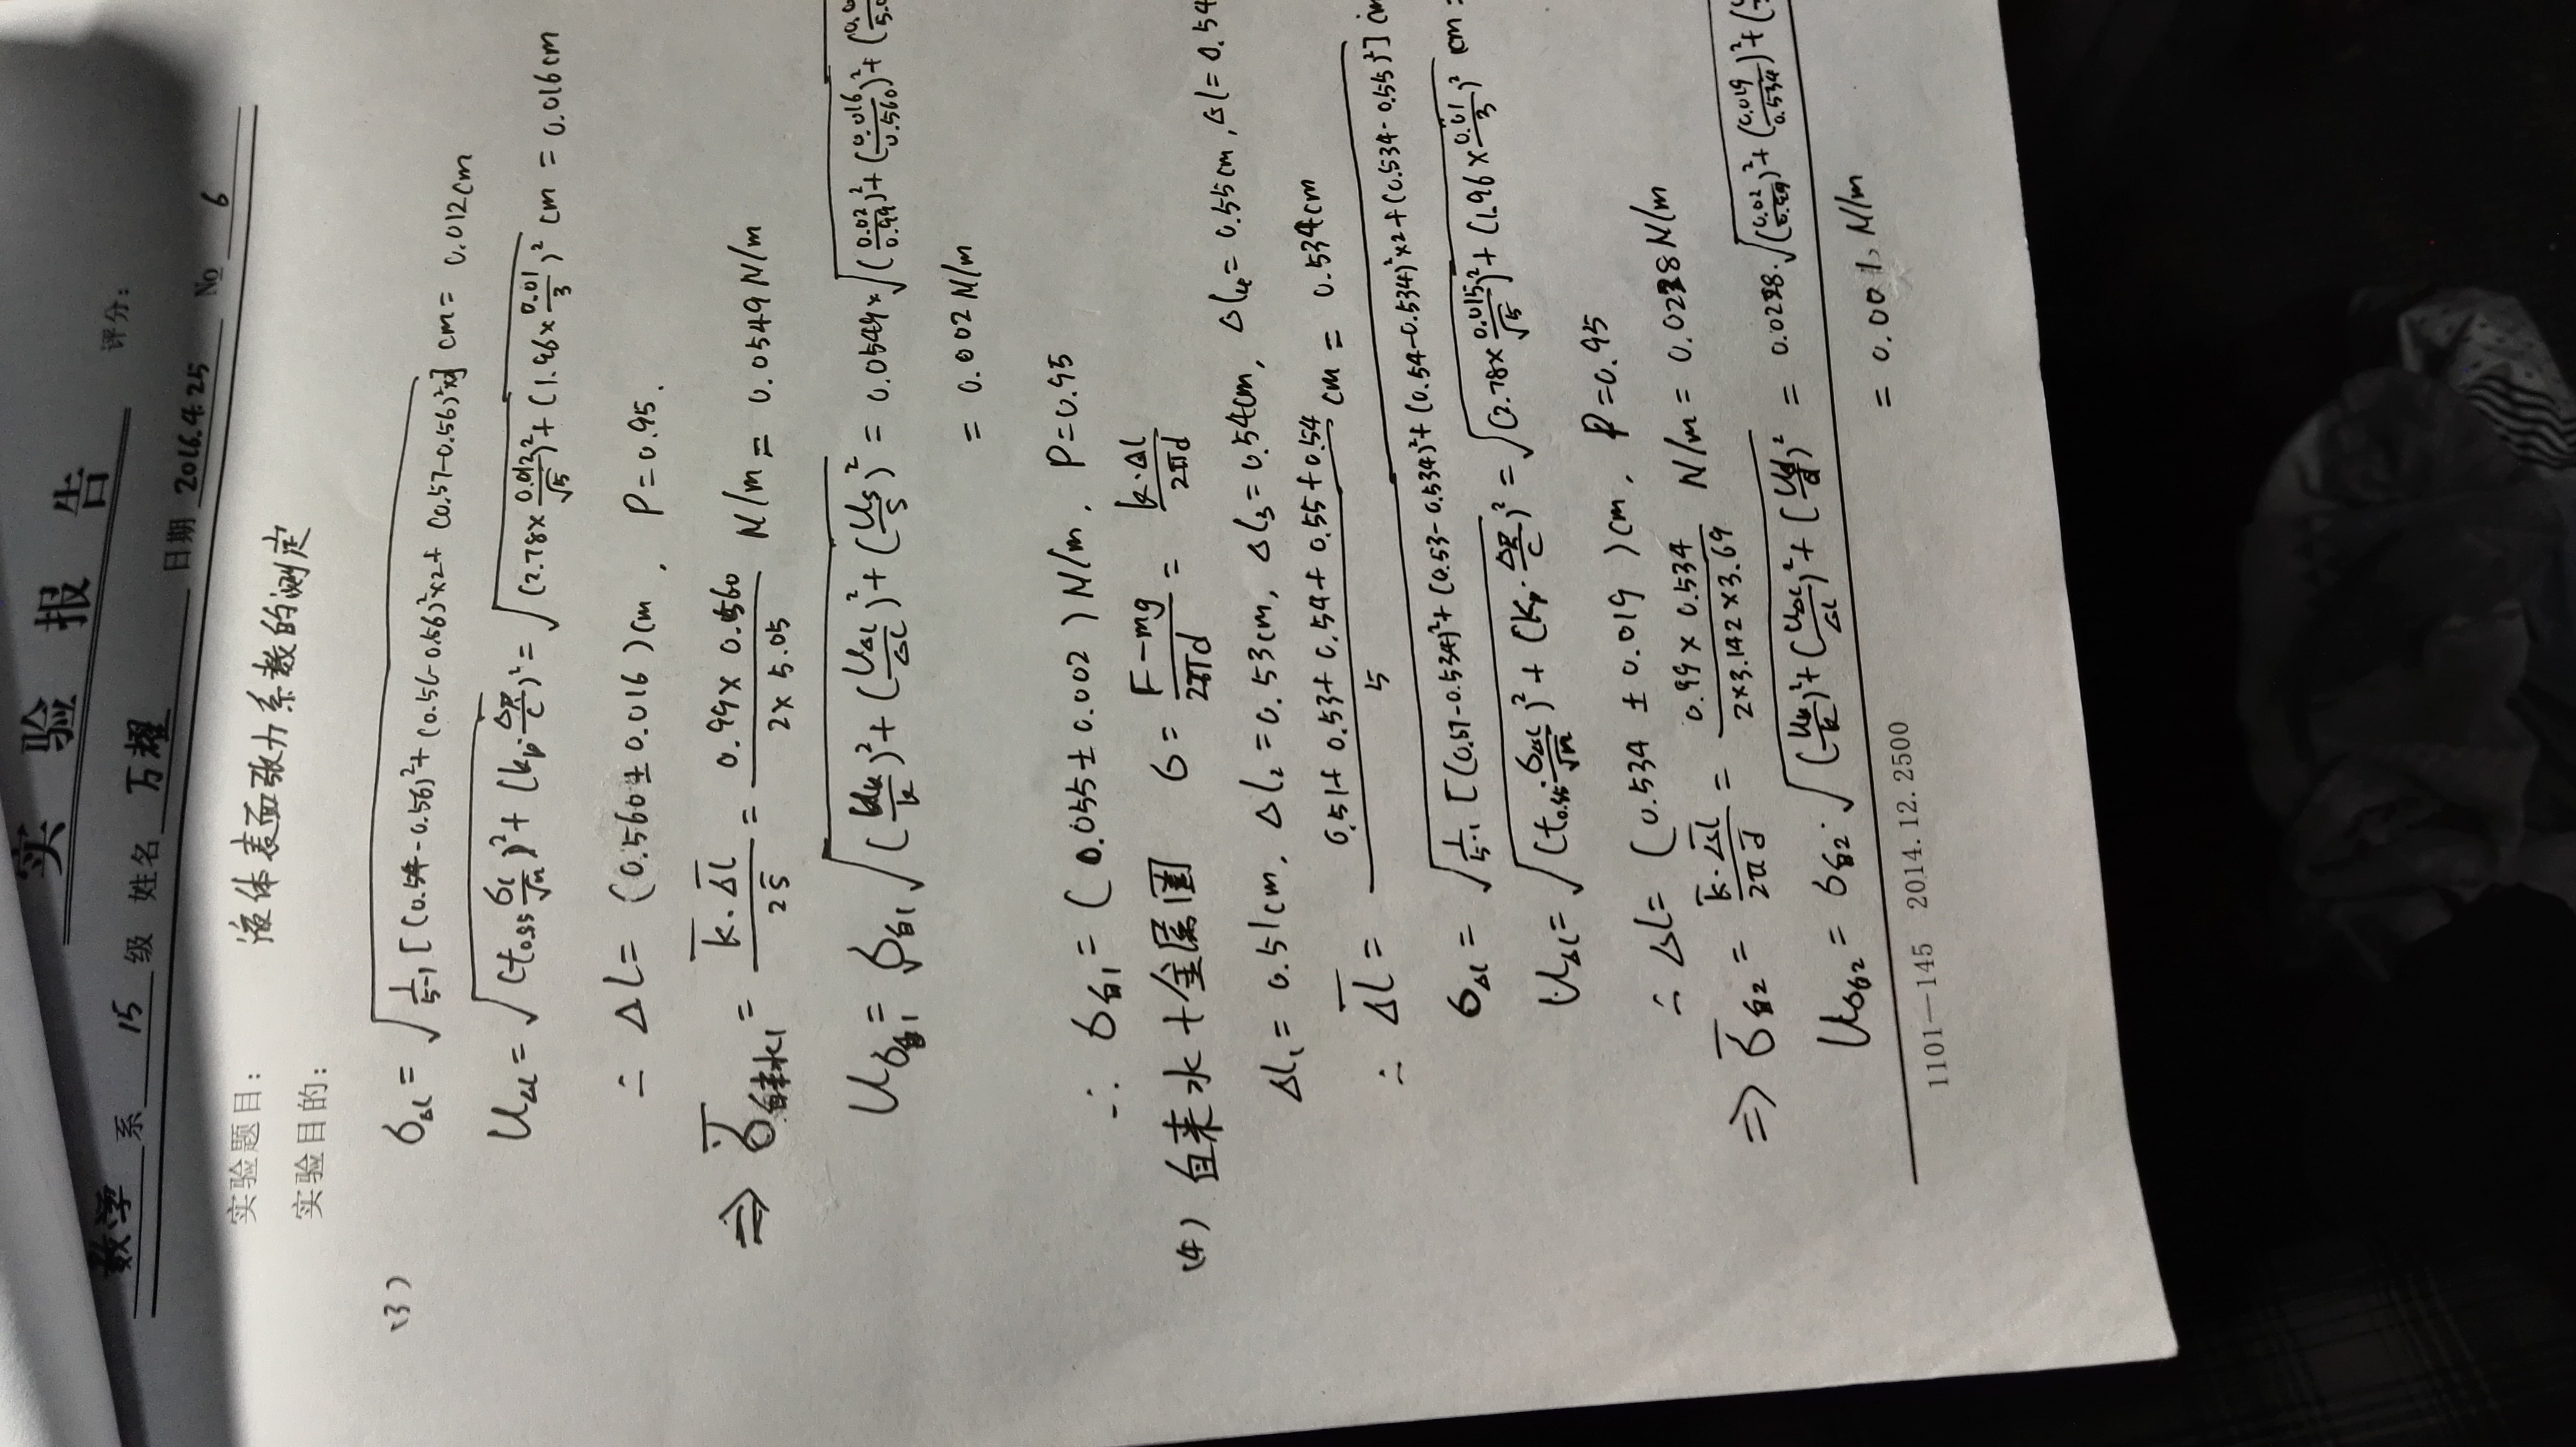 实 验 报 告
评分：
数学 系 15 级 姓名 万耀 日期 2016.4.25 No 6
实验题目： 液体表面张力系数的测定
实验目的：
(3)
σΔl = √(1/(5-1) [(0.54-0.56)²+(0.56-0.56)²×2+(0.57-0.56)²×2]) cm = 0.012cm
UΔl = √((t0.95 σl/√n)²+(kp·ΔR/C)²) = √((2.78×0.012/√5)²+(1.96×0.01/3)²) cm = 0.016cm
∴ ΔL = (0.560±0.016)cm , P=0.95.
⇒ σ̄自来水1 = k̄·Δl̄/2s̄ = 0.99×0.560/2×5.05 N/m = 0.0549 N/m
Uσ自1 = σ̄自1 √((Uk/k)²+(UΔl/ΔL)²+(Us/s)²) = 0.0549×√((0.02/0.99)²+(0.016/0.560)²+(
= 0.002 N/m
∴ σ自1 = (0.055±0.002)N/m, P=0.95
(4) 自来水+金属圈 σ = F-mg/2πd = k·Δl/2πd
Δl₁=0.51cm, Δl₂=0.53cm, Δl₃=0.54cm, Δl₄=0.55cm, Δl=0.54
∴ ΔL̄ = 0.51+0.53+0.54+0.55+0.54/5 cm = 0.534cm
σΔl = √(1/(5-1) [(0.51-0.534)²+(0.53-0.534)²+(0.54-0.534)²×2+(0.534-0.55)²]) cm
UΔl = √((t0.95·σΔl/√n)²+(kp·ΔR/C)²) = √((2.78×0.015/√5)²+(1.96×0.01/3)²) cm =
∴ ΔL = (0.534±0.019)cm, P=0.95
⇒ σ̄自2 = k̄·Δl̄/2πd̄ = 0.99×0.534/2×3.142×3.69 N/m = 0.0228N/m
Uσ自2 = σ̄自2·√((Uk/k)²+(UΔl/ΔL)²+(Ud/d)²) = 0.0228·√((0.02/0.99)²+(0.019/0.534)²+(
= 0.001 N/m
1101—145 2014.12.2500